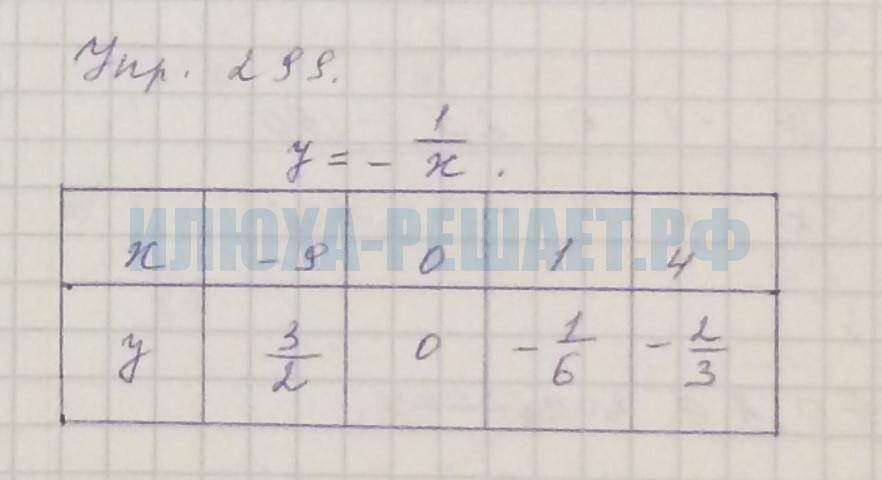 Упр. 299.
y = - 1/x .
ИЛЮХА-РЕШАЕТ.РФ
x -9 0 1 4
y 3/2 0 -1/6 -2/3